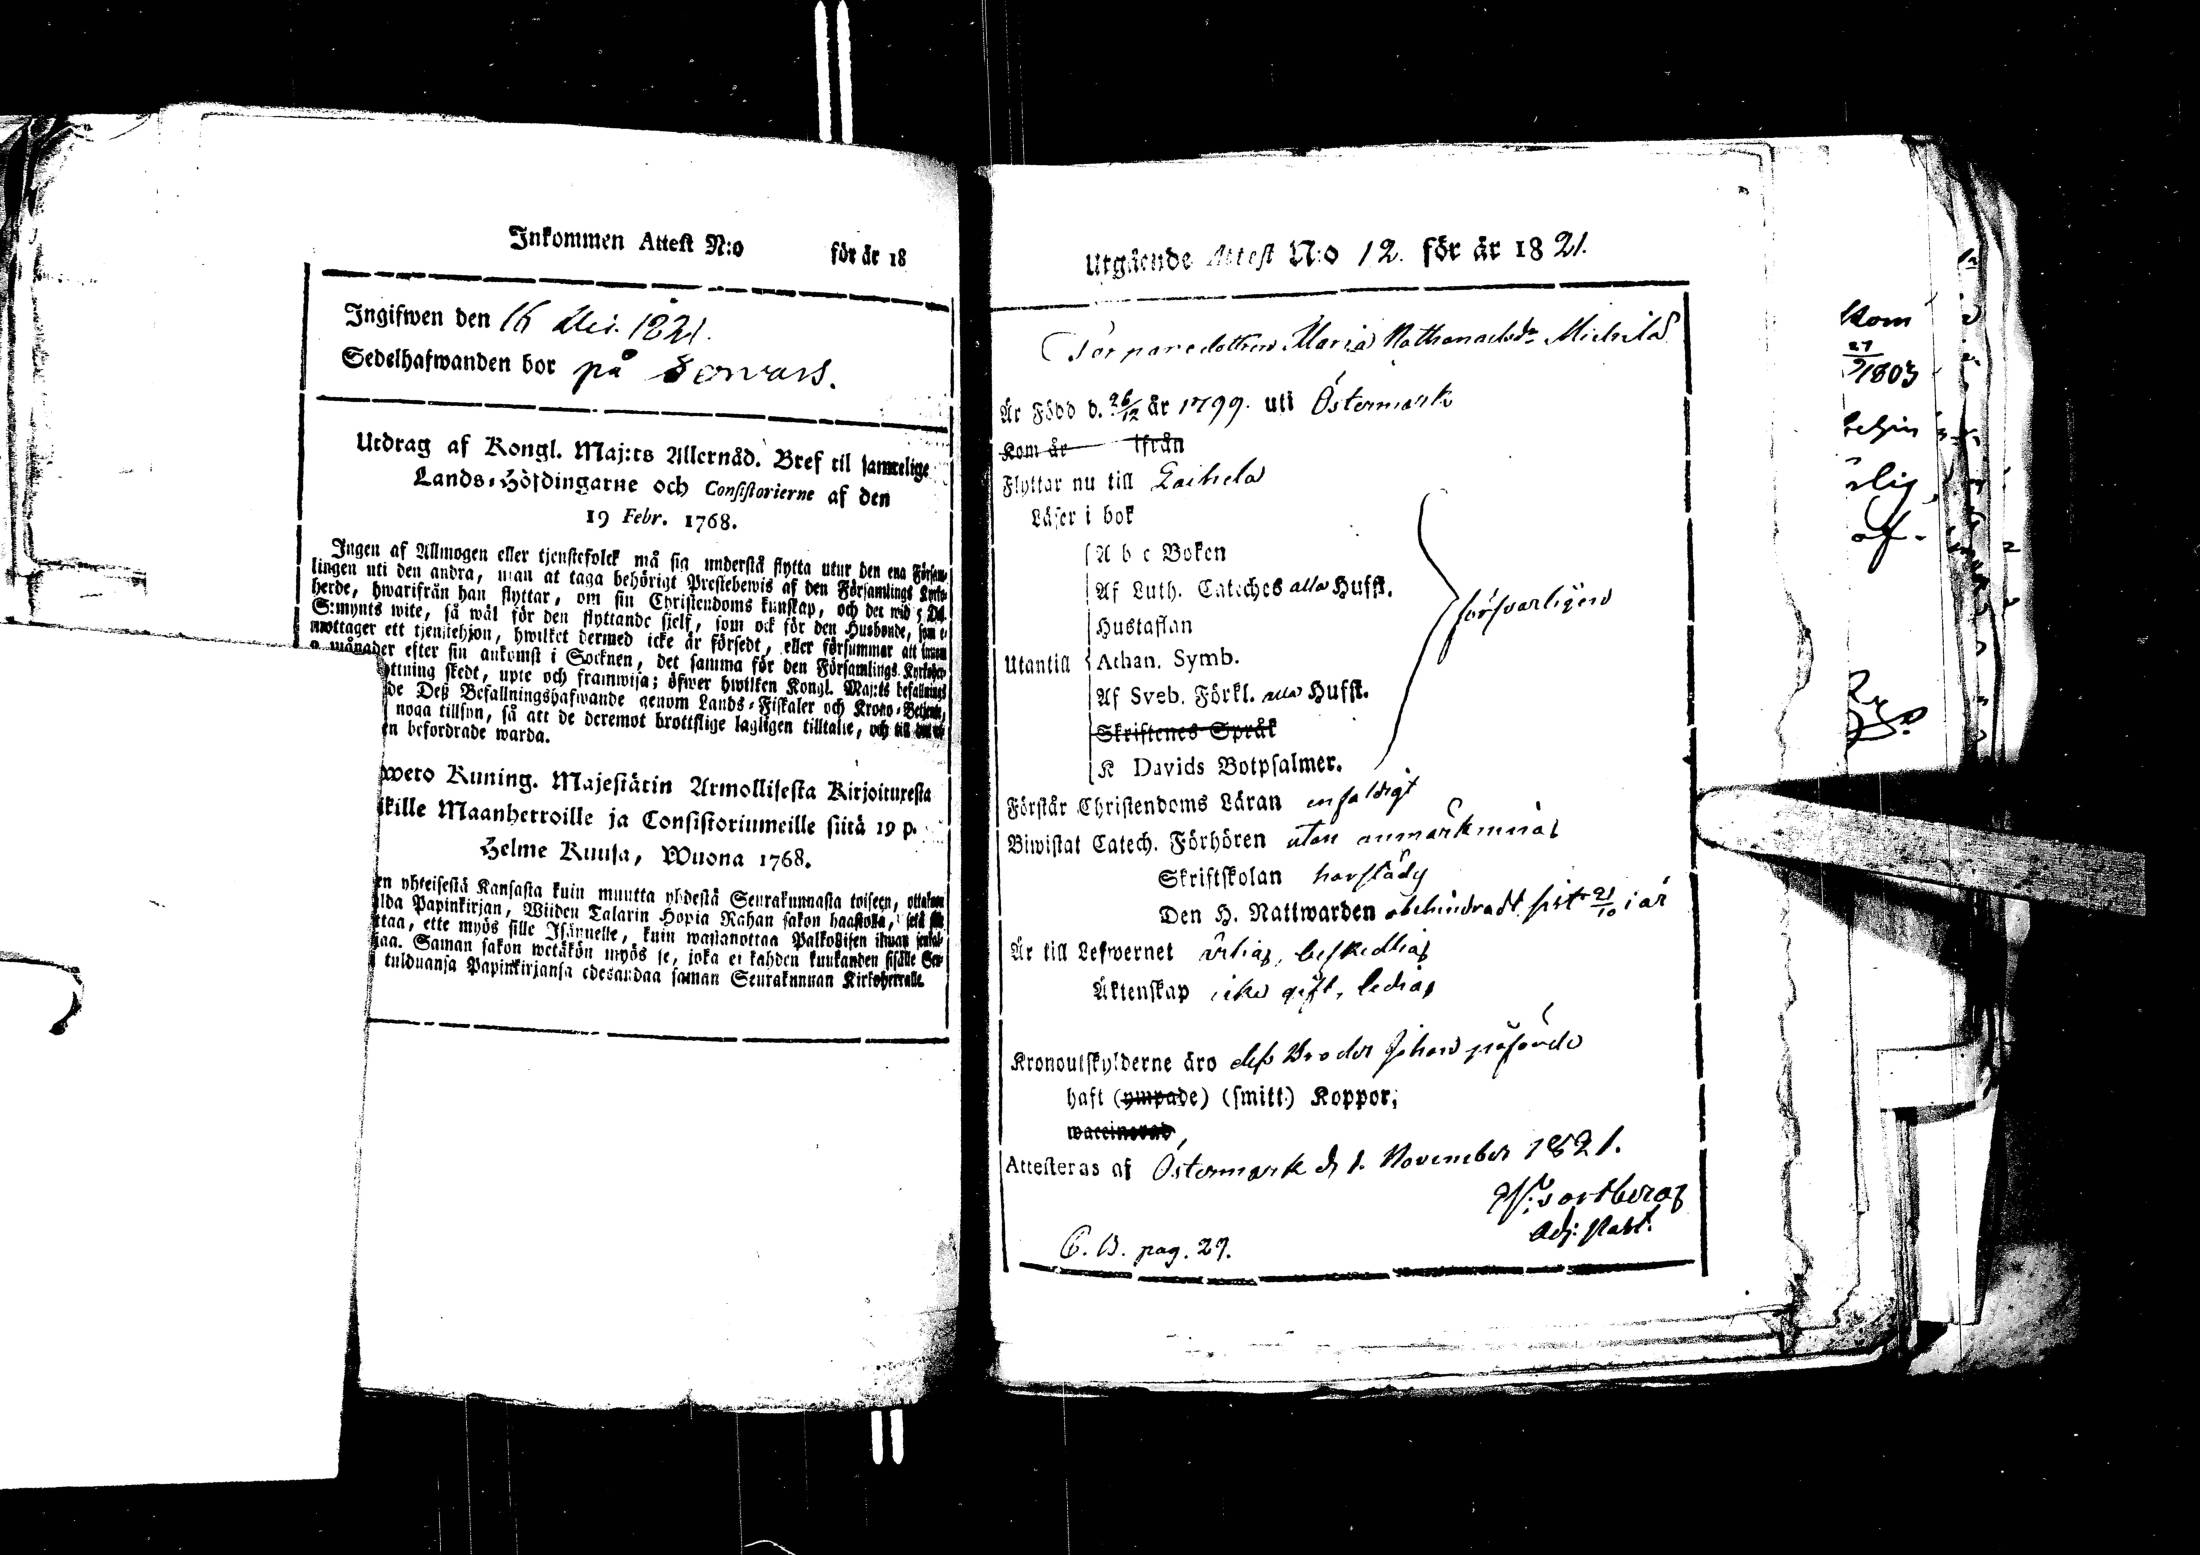 Inkommen Attest N:o för år 18
Ingifwen den 16 1821.
Sedelhafwanden bor på
Utdrag af Kongl. Maj:ts Allernåd. Bref til samtelige
Lands-Höfdingarne och Consistorierne af den
19 Febr. 1768.
Ingen af Allmogen eller tjenstefolck må sig understå flytta utur den ena Försam-
lingen uti den andra, utan at taga behörigt Prestebewis af den Församlings Kyrko-
herde, hwarifrån han flyttar, om sin Christendoms kunskap, och det wid 5 Dal.
S:mynts wite, så wäl för den flyttande sielf, som ock för den Husbonde, som e-
mottager ett tjenstehjon, hwilket dermed icke är försedt, eller försummar att innom
2 månader efter sin ankomst i Socknen, det samma för den Församlings Kyrkoher-
ttning skedt, upte och framwisa; öfwer hwilken Kongl. Maj:ts befallnings
de Deß Befallningshafwande genom Lands-Fiskaler och Krono-Betjente,
noga tillsyn, så att de deremot brottslige lagligen tilltalte, och till
en befordrade warda.
weto Kuning. Majestätin Armollisesta Kirjoituxesta
ikille Maanherroille ja Consistoriumeille siitä 19 p.
Helme Kuusa, Wuona 1768.
en yhteisestä Kansasta kuin muutta yhdestä Seurakunnasta toiseen, ottakoon
lda Papinkirjan, Wiiden Talarin Hopia Rahan sakon haastolla, sekä
ttaa, ette myös sille Isännelle, kuin wastanottaa Palkollisen ilman
aa. Saman sakon wetäkön myös se, joka ei kahden kuukanden sisälle Seu-
tulduansa Papinkirjansa edesandaa saman Seurakunnan Kirkoherralle.
Utgående Attest N:o 12. för år 1821.
Torparedottren Maria Nathanaelsdr
Är Född d. 26/12 år 1799. uti Östermark
Kom år ifrån
Flyttar nu till Laihela
Läser i bok
A b c Boken
Af Luth. Cateches alla Hufst.
Hustaflan försvarligen
Utantill Athan. Symb.
Af Sveb. Förkl. alla Hufst.
Skriftenes Språk
K Davids Botpsalmer.
Förstår Christendoms Läran enfaldigt
Biwistat Catech. Förhören utan anmärkning
Skriftskolan
Den H. Nattwarden obehindradt sist 21/10 i år
Är till Lefwernet ärlig, beskedlig
Äktenskap icke gift, ledig
Kronoutskylderne äro dess Broder Johan påförde
haft (ympade) (smitt.) Koppor,
waccinerad,
Attesteras af Östermark d. 1. November 1821.
Adj: Past.
C. B. pag. 27.
Kom
27/9 1803